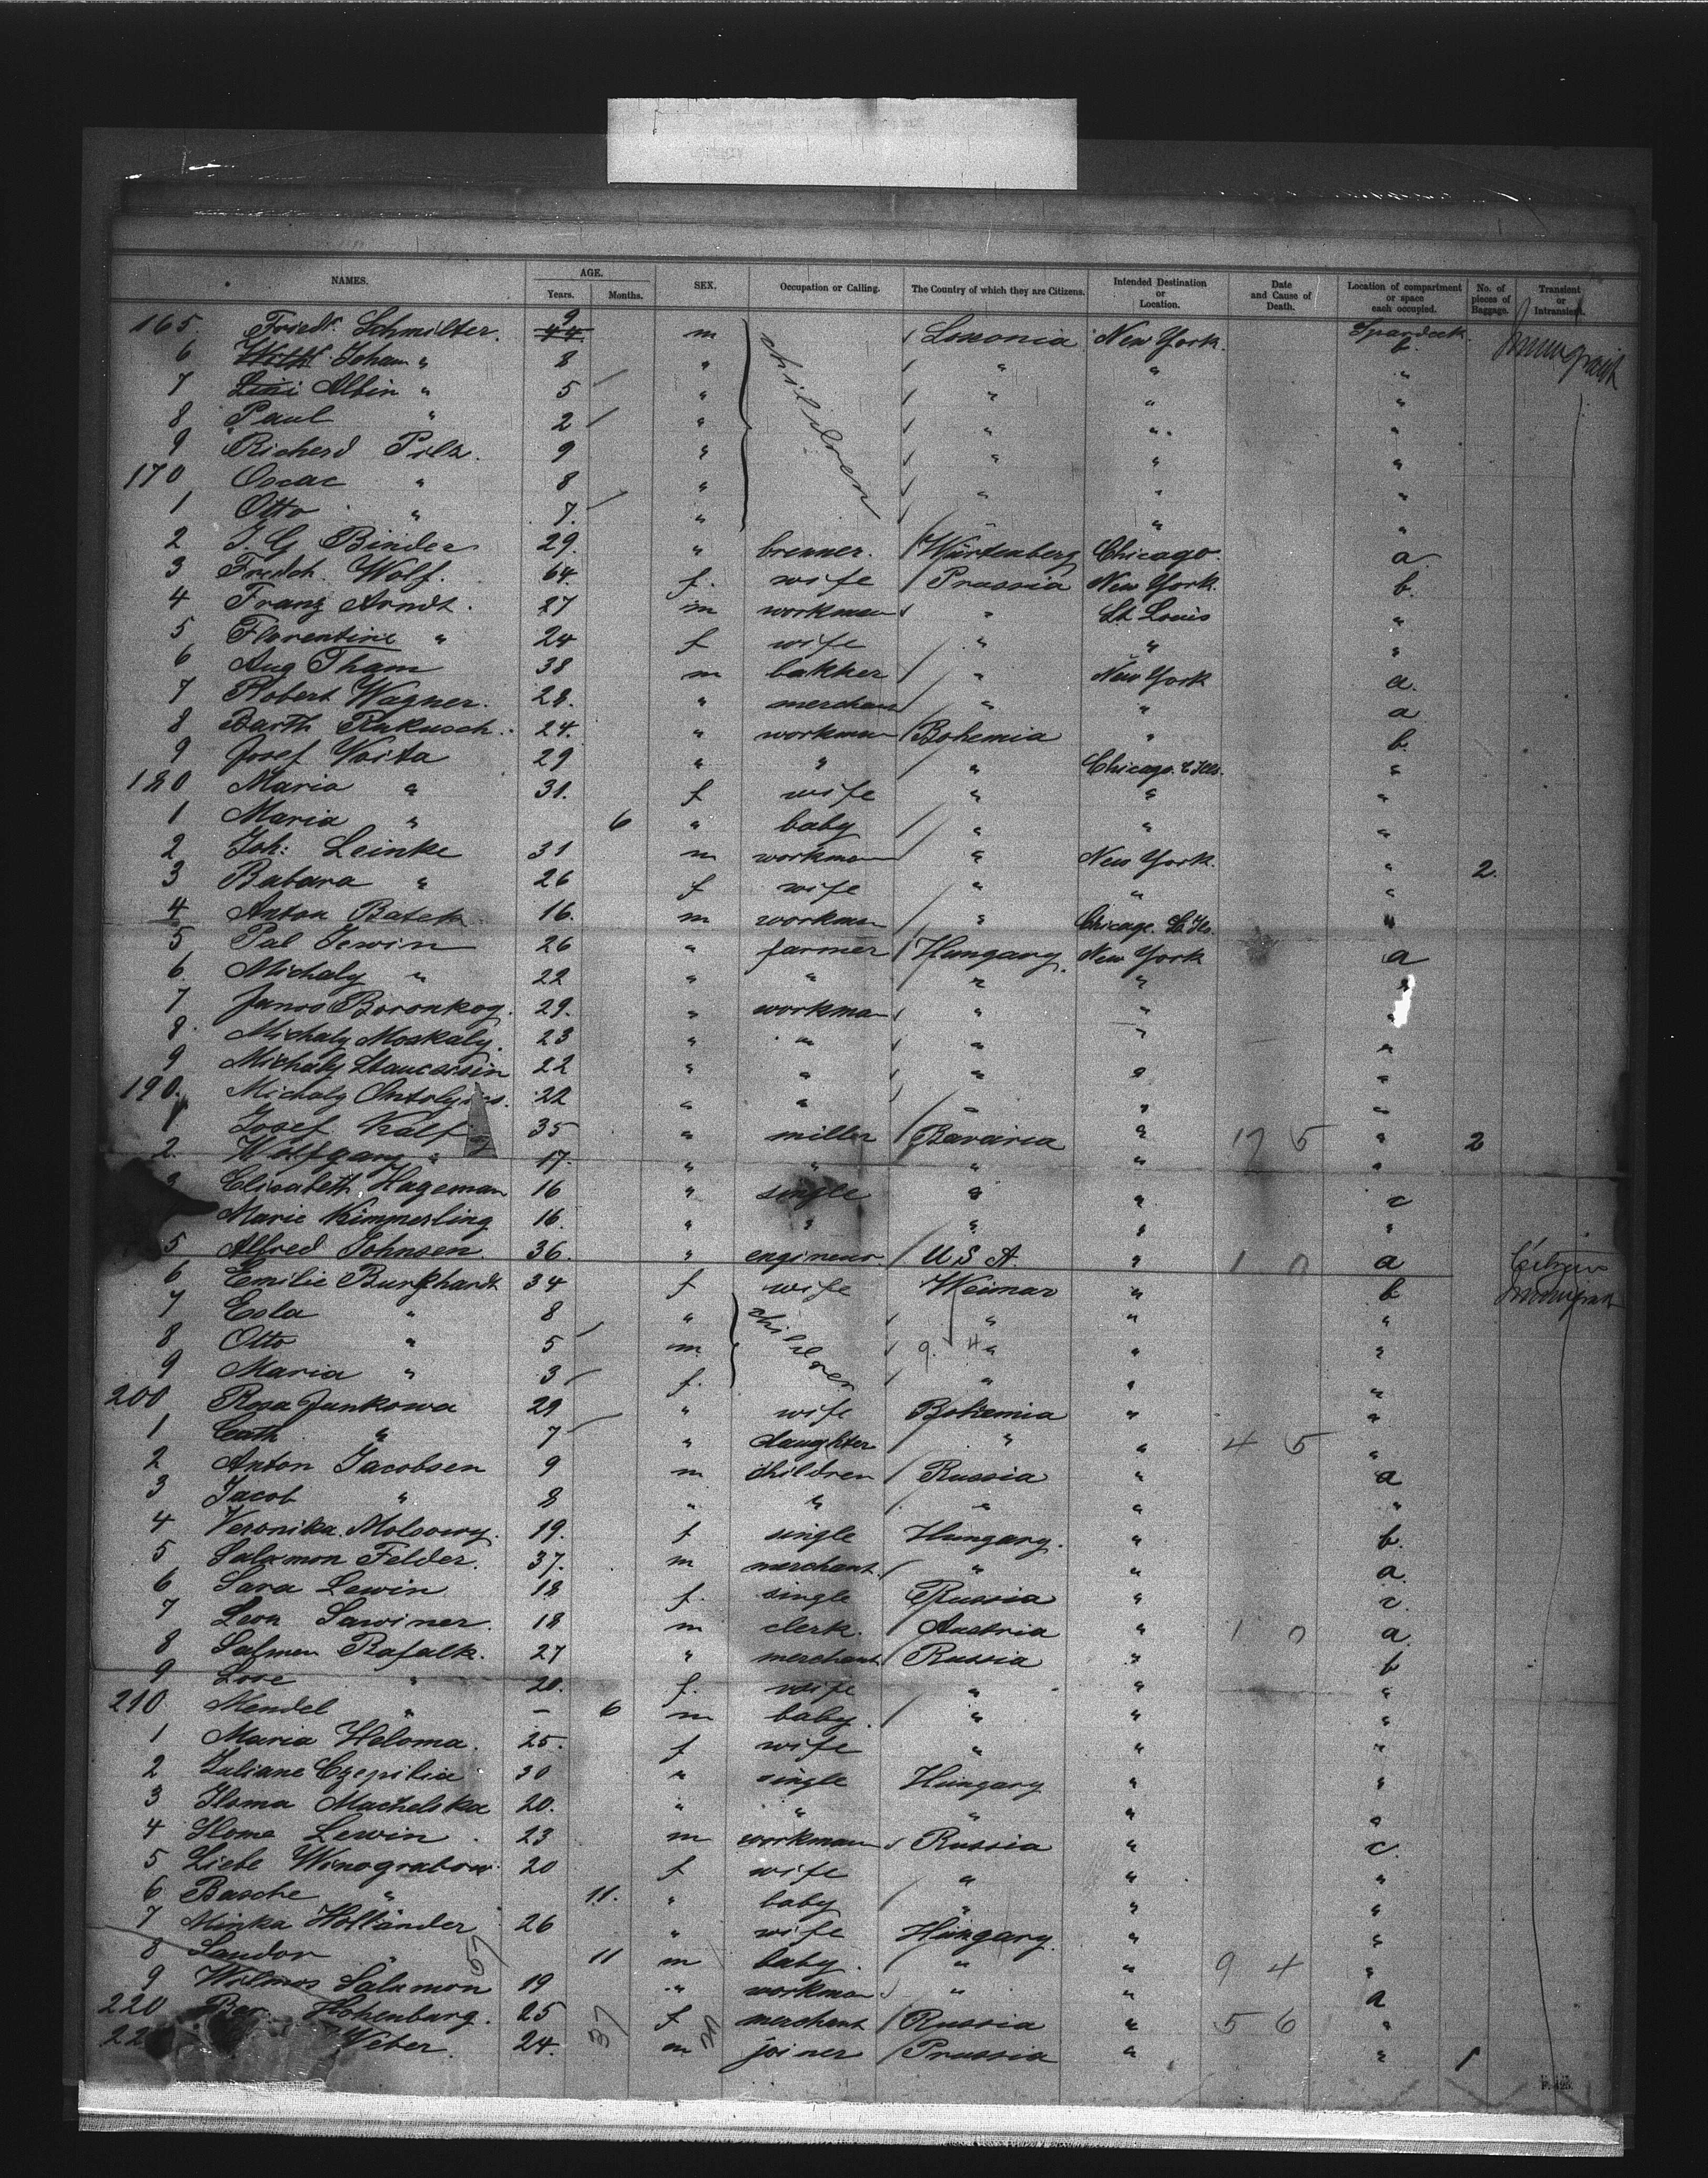 NAMES. AGE. Years. Months. SEX. Occupation or Calling. The Country of which they are Citizens. Intended Destination or Location. Date and Cause of Death. Location of compartment or space each occupied. No. of pieces of Baggage. Transient or Intransient.
165. Friedr. Schmilter. 9 m children Saxonia New York.
6 Johann " 8 " " " "
7 Albin " 5 " " " "
8 Paul " 2 " " " "
9 Richerd Pilz. 9 " " " "
170 Oscar " 8 " " " "
1 Otto " 7. " " "
2 J. G. Binder 29. " brenner. Würtenberg Chicago. a
3 Friedch. Wolf. 64. f. wife Prussia New York. b.
4 Franz Arndt. 27 m workman " St. Louis "
5 Florentine " 24 f wife " " "
6 Aug Tham 38 m bakker " New York a.
7 Robert Wagner. 28. " merchant " " a
8 Barth Rakusch. 24. " workman Bohemia " b.
9 Josef Voita 29 " " " Chicago "
180 Maria " 31. f wife " " "
1 Maria " 6 " baby " " "
2 Joh: Leinke 31 m workman " New York. " 2.
3 Babara " 26 f wife " " "
4 Anton Batek 16. m workman " Chicago. "
5 Pal Jewin 26 " farmer Hungary. New York a
6 Michaly " 22 " " " " "
7 Janos Boronkay. 29. " workman " " "
8. Michaly Moskaly. 23 " " " " "
9 Michaly 22 " " " " "
190. Michaly 22 " " " " "
1 Josef Kalf 35 " miller Bavaria " 17 5 " 2
2. Wolfgang " 17. " " " " "
3 Elisabeth Hageman 16 " single " " c
Marie Kimmerling 16. " " " " "
5 Alfred Johnsen. 36. " engineur. U S A. " 1 0 a
6 Emilie Burkhardt 34 f wife Weimar " b
7 Eola " 8 " children " " "
8 Otto " 5 m 9. 4 " " "
9 Maria " 3 f. " " "
200 Rosa Junkowa 29 " wife Bohemia " "
1 Cath " 7 " daughter " " 4 5 "
2 Anton Jacobsen 9 m children Russia " a
3 Jacob " 8 " " " " "
4 Veronika Molsowy. 19. f single Hungary. " b.
5 Salamon Felder. 37. m merchant. " " a.
6 Sara Lewin 18 f. single Russia " c.
7 Leon Sawiner. 18 m clerk. Austria " 1 0 a.
8 Salmen Rafalk. 27 " merchant Russia " b
9 " 20. f. wife " " "
210 Mendel " – 6 m baby. " " "
1 Maria Heloma. 25. f wife " " "
2 Juliane 30 " single Hungary " "
3 Ilona Machelska 20. " " " " "
4 Lewin 23 m workman Russia " c.
5 Liebe Winogradow. 20 f wife " " "
6 Basche " 11. " baby " " "
7 Minka Holländer 26 " wife Hungary. " "
8 Sandor " 11 m baby. " " 9 4 "
9 Wilmos Salamon 19 " workman " " a
220 Ber. Hohenburg. 25 f merchant Russia " 5 6 "
22 Weber. 24. m joiner Prussia " " 1